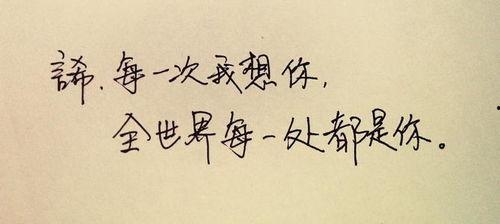 諦. 每一次我想你,
全世界每一处都是你。